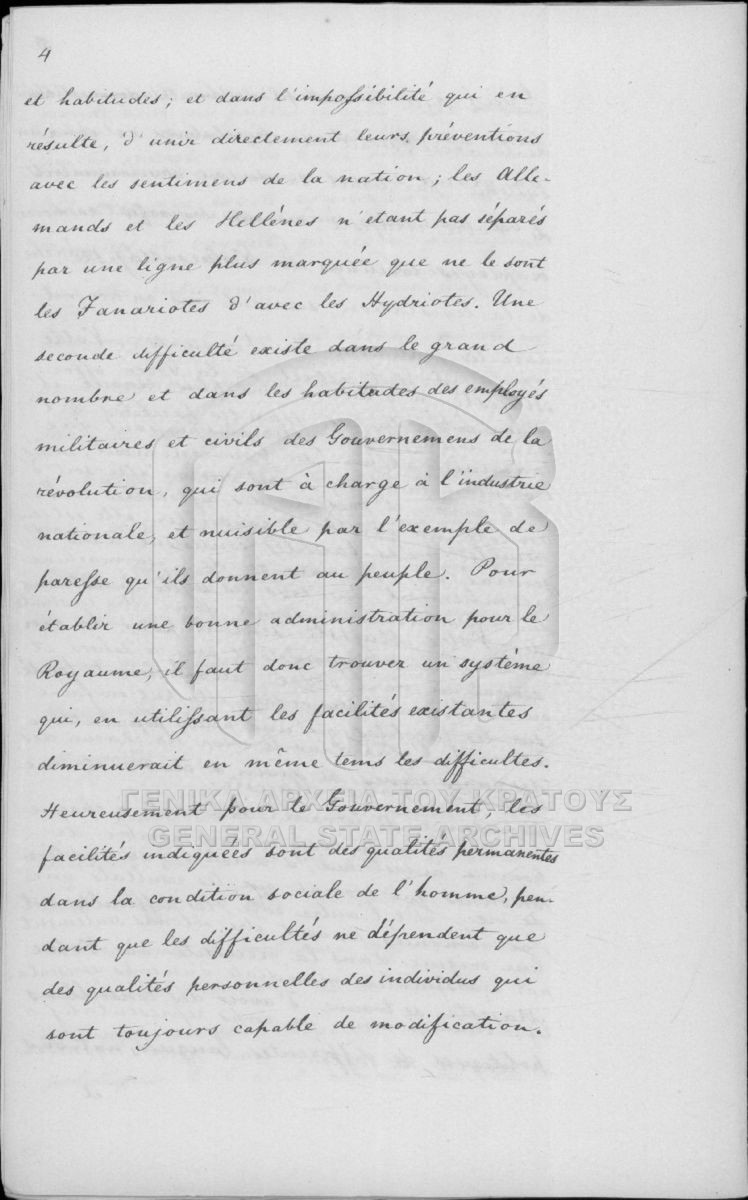 4
et habitudes; et dans l'impossibilité qui en
résulte, d'unir directement leurs préventions
avec les sentimens de la nation; les Alle-
mands et les Hellénes n'etant pas séparés
par une ligne plus marquée que ne le sont
les Fanariotes d'avec les Hydriotes. Une
seconde difficulté existe dans le grand
nombre et dans les habitudes des employés
militaires et civils des Gouvernemens de la
révolution, qui sont à charge à l'industrie
nationale, et nuisible par l'exemple de
paresse qu'ils donnent au peuple. Pour
établir une bonne administration pour le
Royaume, il faut donc trouver un systéme
qui, en utilissant les facilités existantes
diminuerait en même tems les difficultes.
Heureusement pour le Gouvernement, les
ΓΕΝΙΚΑ ΑΡΧΕΙΑ ΤΟΥ ΚΡΑΤΟΥΣ
GENERAL STATE ARCHIVES
facilités indiquées sont des qualités permanentes
dans la condition sociale de l'homme, pen-
dant que les difficultés ne dépendent que
des qualités personnelles des individus qui
sont toujours capable de modification.